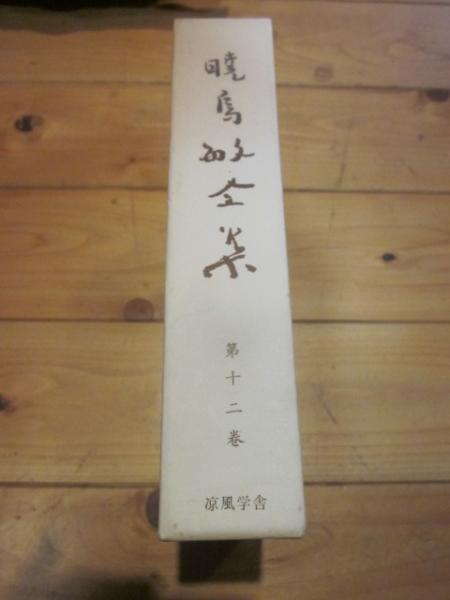 暁烏敏全集
第十二巻
涼風学舎